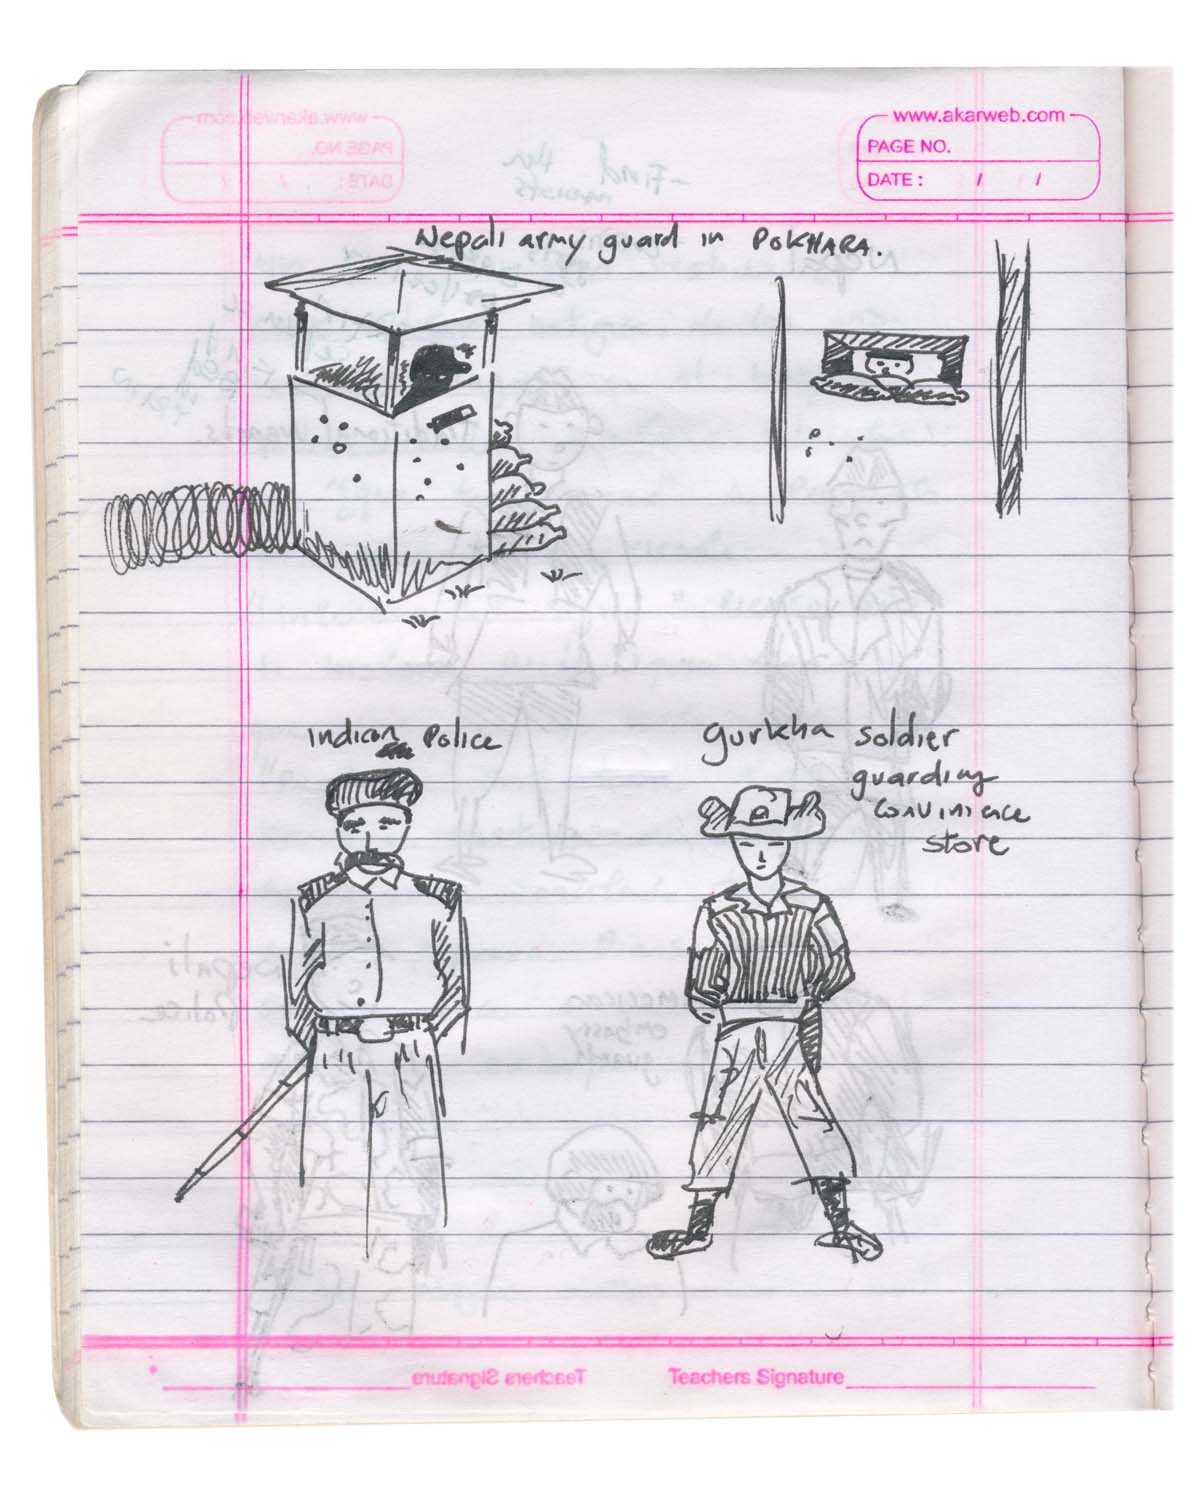 www.akarweb.com
PAGE NO.
DATE : / /
Nepali army guard in POKHARA.
indian Police
gurkha soldier
guarding
convinience
store
Teachers Signature